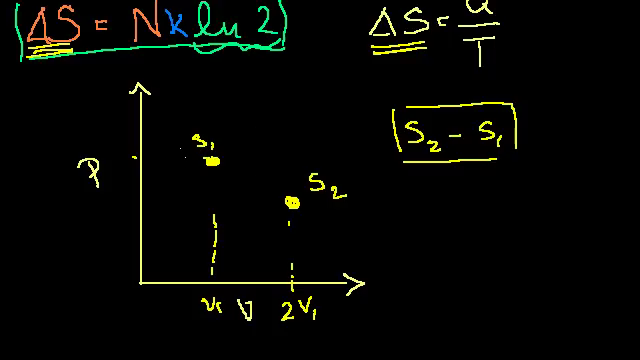 ΔS = Nk ln 2
ΔS = Q/T
S₂ - S₁
S₁
P
S₂
V₁ V 2V₁